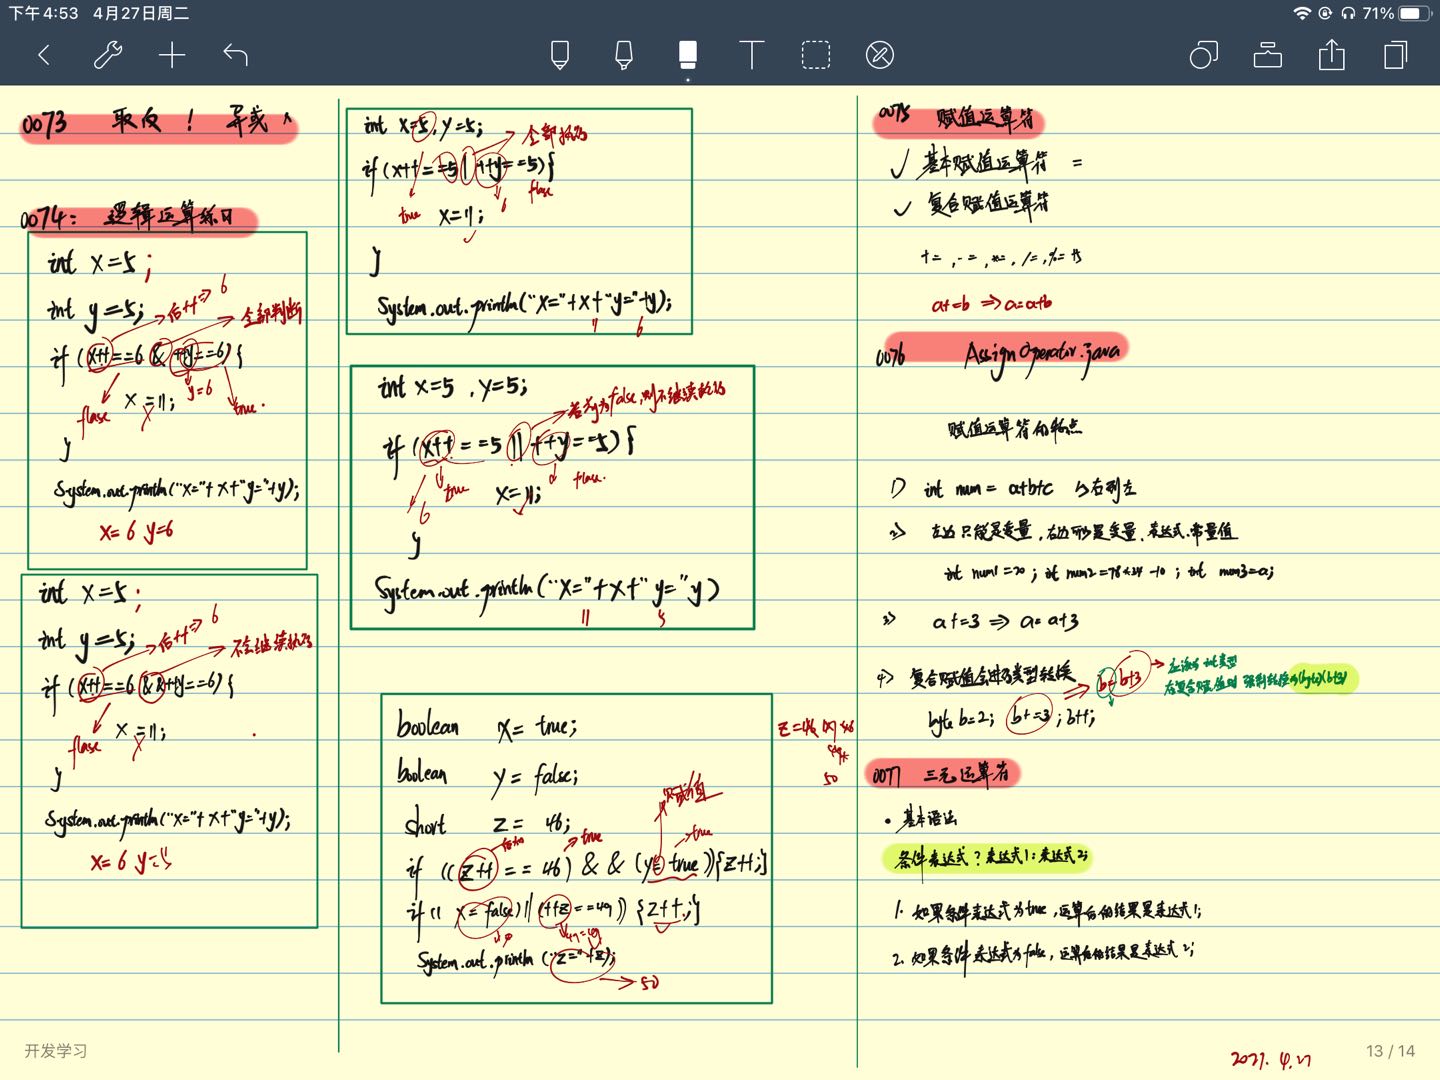 下午4:53 4月27日周二
71%
0073 取反 ! 异或 ^
0074: 逻辑运算练习
int x=5;
int y=5;
后++ => 6
全部判断
if (x++==6 & ++y==6) {
y=6
flase
x=11;
true.
}
System.out.println("x="+x+"y="+y);
x=6 y=6
int x=5;
int y=5;
后++ => 6
不会继续执行
if (x++==6 && ++y==6) {
flase
x=11;
}
System.out.println("x="+x+"y="+y);
x=6 y=5
int x=5, y=5;
全部执行
if (x++==5 | ++y==5) {
true
6
flase
x=11;
}
System.out.println("x="+x+"y="+y);
11 6
int x=5, y=5;
if (x++==5 || ++y==5) {
true
flase.
x=11;
6
}
System.out.println("x="+x+" y="y)
11 5
boolean x= true;
boolean y= false;
short z= 46;
赋值
后加
true
true
if ((z++==46) && (y=true)){z++;}
if (( x=false) || (++z==49)) {z++;}
49=49
System.out.println("z="+z);
50
50
0075 赋值运算符
✓ 基本赋值运算符 =
✓ 复合赋值运算符
+= , -= , *= , /= , %= 等
a+=b => a=a+b
0076 AssignOperator.java
赋值运算符的特点
1) int num = a+b+c 从右到左
2) 左边只能是变量, 右边可以是变量, 表达式, 常量值
int num1=20; int num2=78*24-10; int num3=a;
3) a+=3 => a=a+3
4) 复合赋值会进行类型转换 => b=b+3
在复合赋值时 强制转换为(byte)(b+3)
byte b=2; b+=3; b++;
0077 三元运算符
• 基本语法
条件表达式? 表达式1: 表达式2;
1. 如果条件表达式为true, 运算后的结果是表达式1;
2. 如果条件表达式为false, 运算后的结果是表达式2;
开发学习
2021. 4.27
13 / 14